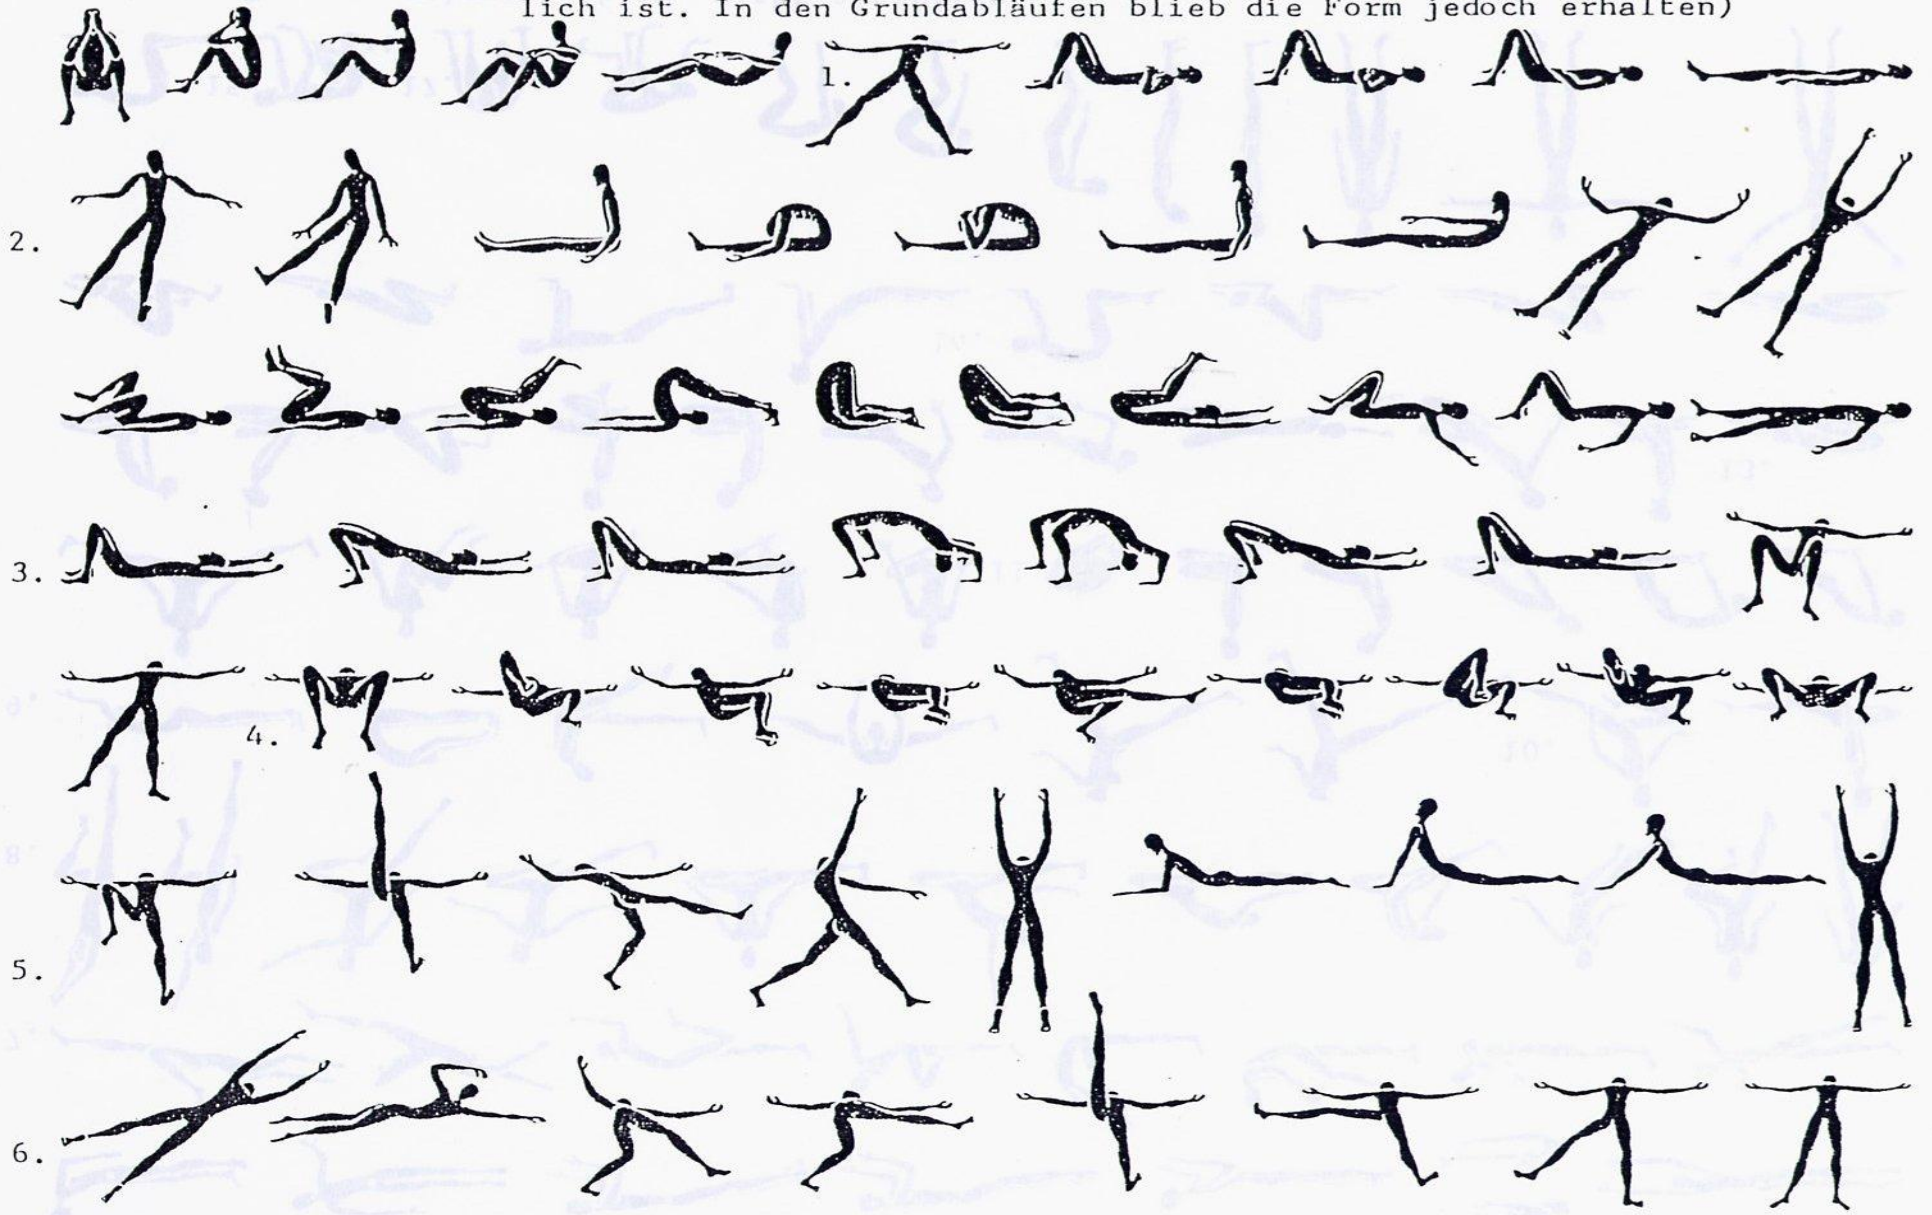 lich ist. In den Grundabläufen blieb die Form jedoch erhalten)
1.
2.
3.
4.
5.
6.